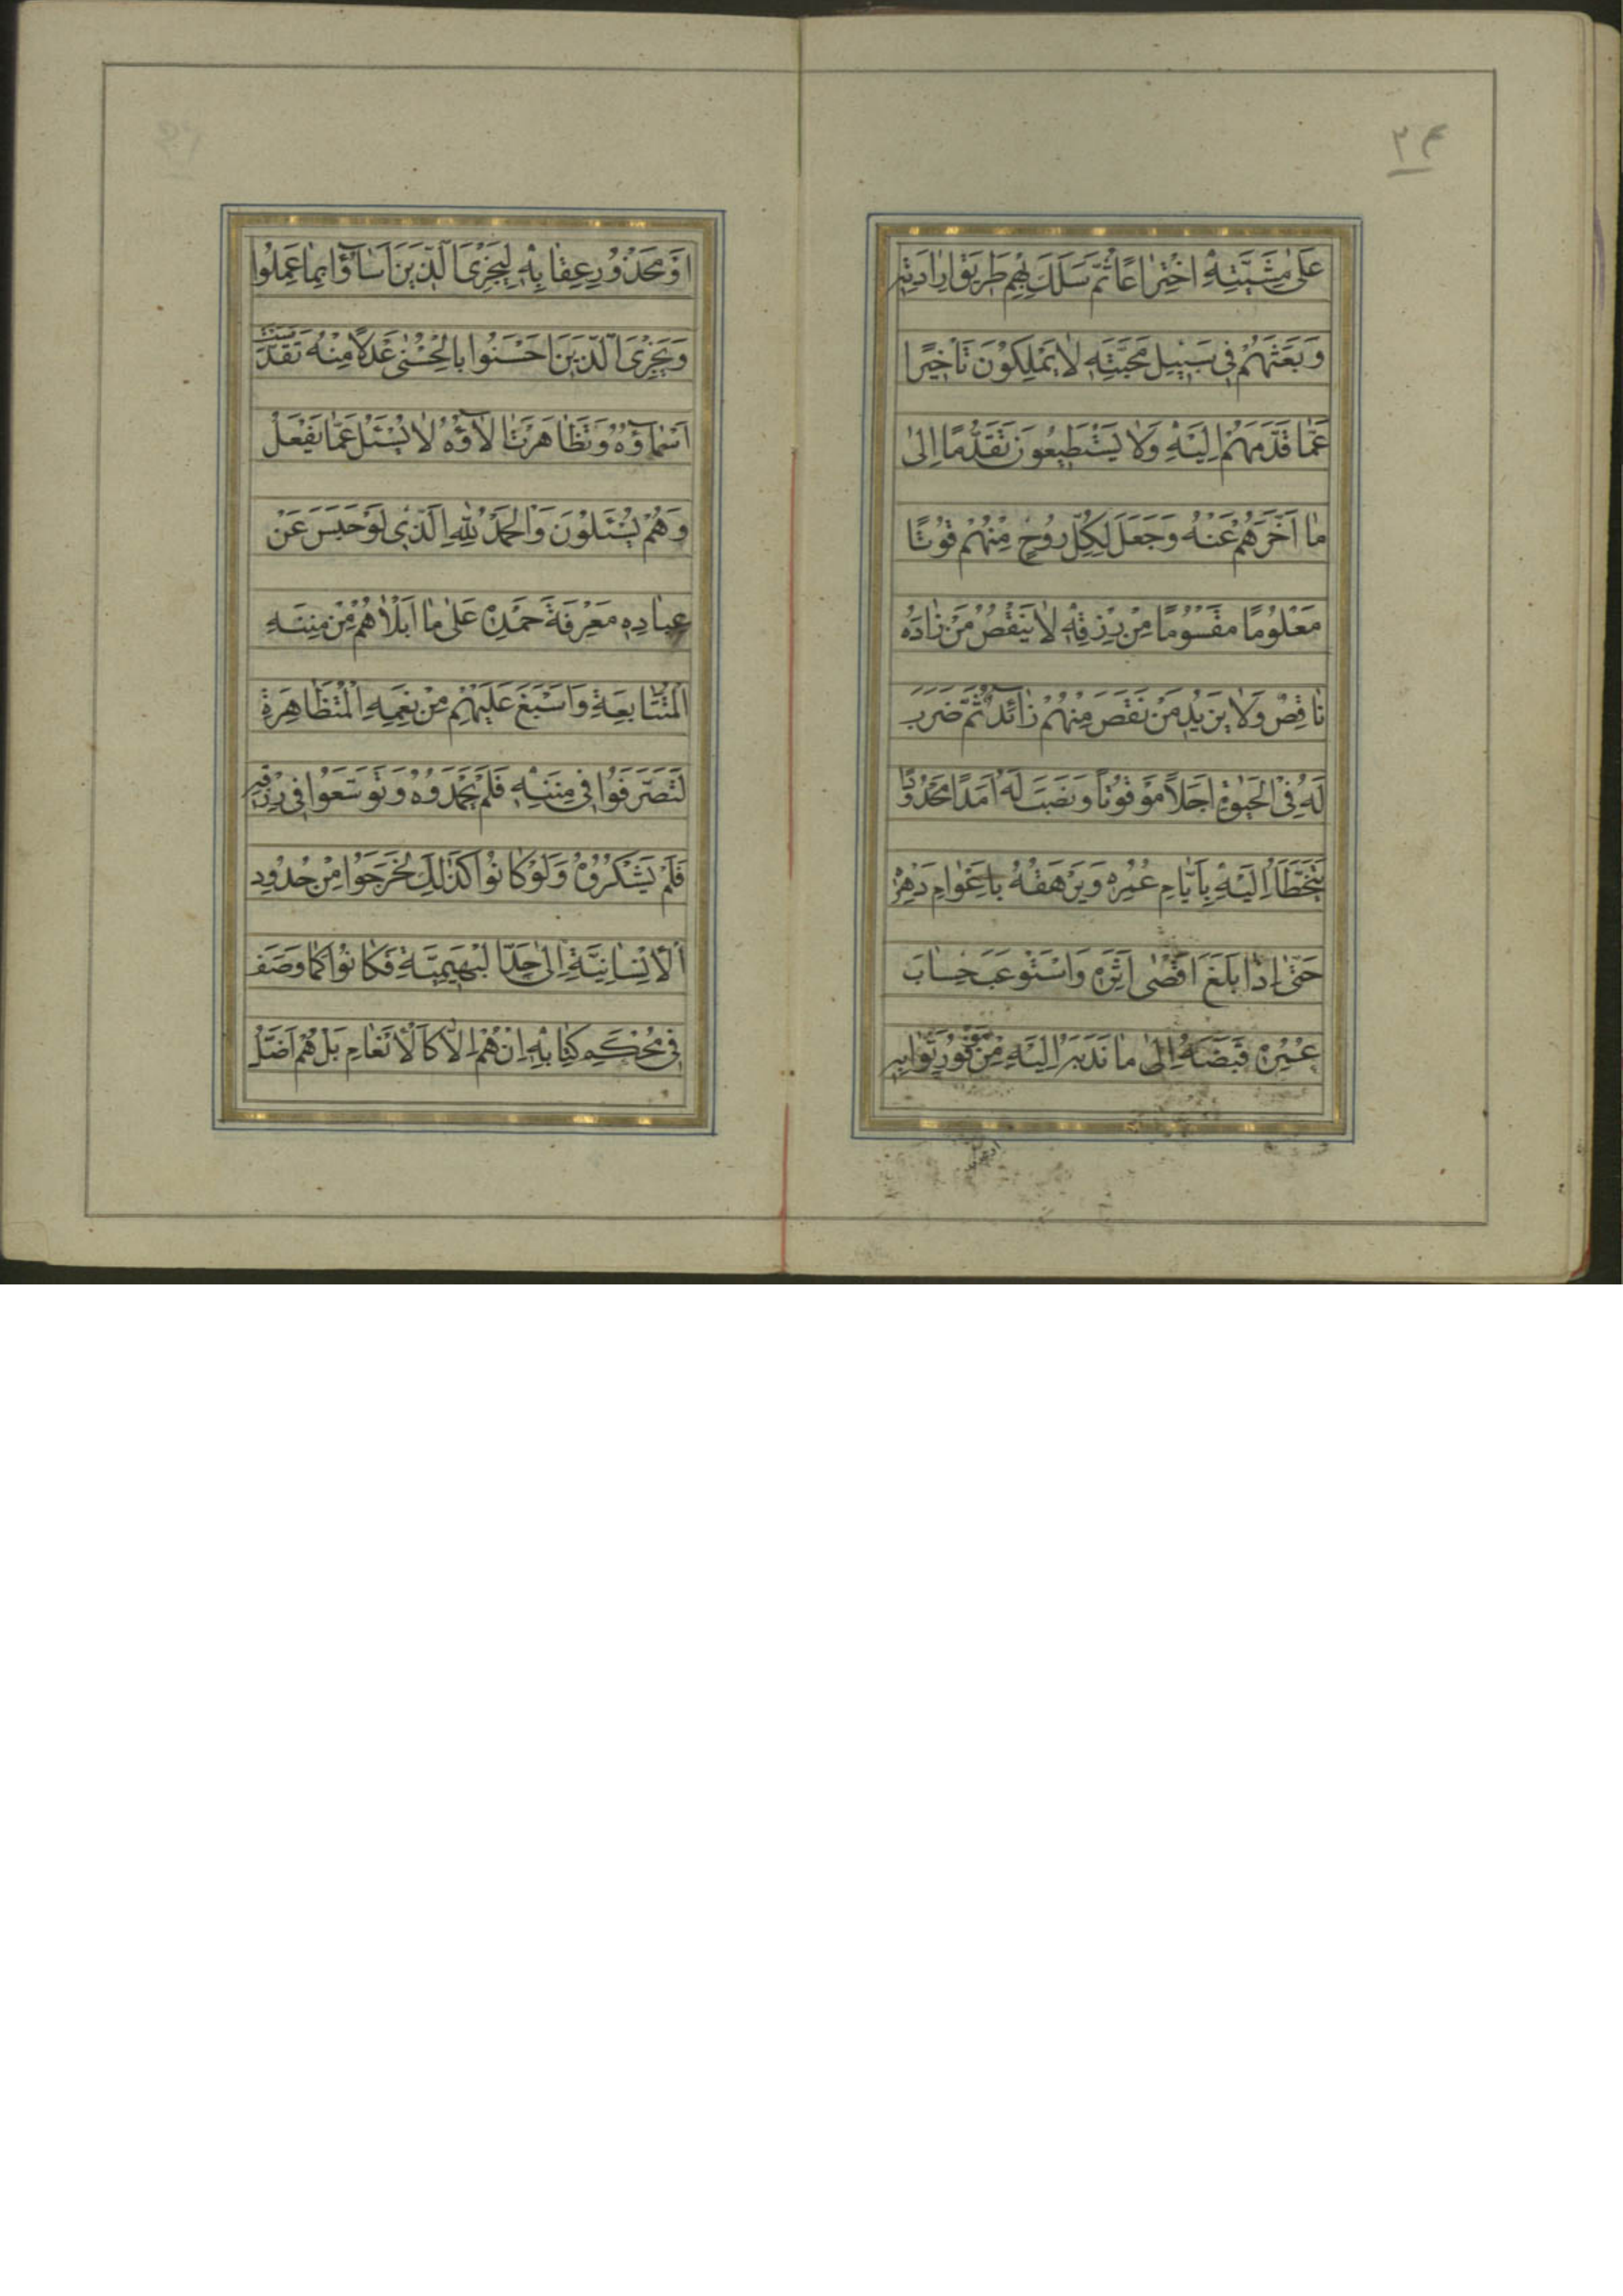 ۲۴
عَلىٰ مَشِيَّتِهِ اخْتِراعًا ثُمَّ سَلَكَ بِهِمْ طَريقَ اِرادَتِهِ
وَبَعَثَهُمْ فى سَبيلِ مَحَبَّتِهِ لا يَمْلِكُونَ تَأْخيرًا
عَمّا قَدَّمَهُمْ اِلَيْهِ وَلا يَسْتَطيعُونَ تَقَدُّمًا اِلىٰ
ما اَخَّرَهُمْ عَنْهُ وَجَعَلَ لِكُلِّ رُوحٍ مِنْهُمْ قُوتًا
مَعْلُومًا مَقْسُومًا مِنْ رِزْقِهِ لا يَنْقُصُ مَنْ زادَهُ
ناقِصٌ وَلا يَزيدُ مَنْ نَقَصَ مِنْهُمْ زآئِدٌ ثُمَّ ضَرَبَ
لَهُ فِى الْحَيٰوةِ اَجَلاً مَوْقُوتًا وَنَصَبَ لَهُ اَمَدًا مَحْدُودًا
يَتَخَطَّأُ اِلَيْهِ بِاَيّامِ عُمُرِهِ وَيَرْهَقُهُ بِاَعْوامِ دَهْرِهِ
حَتّىٰ اِذا بَلَغَ اَقْصٰى اَثَرِهِ وَاسْتَوْعَبَ حِسابَ
عُمُرِهِ قَبَضَهُ اِلىٰ ما نَدَبَهُ اِلَيْهِ مِنْ مَوْفُورِ ثَوابِهِ
اَوْ مَحْذُورِ عِقابِهِ لِيَجْزِىَ الَّذينَ اَسآؤُا بِما عَمِلُوا
وَيَجْزِىَ الَّذينَ اَحْسَنُوا بِالْحُسْنٰى عَدْلاً مِنْهُ تَقَدَّسَتْ
اَسْمآؤُهُ وَتَظاهَرَتْ الآؤُهُ لا يُسْئَلُ عَمّا يَفْعَلُ
وَهُمْ يُسْئَلُونَ وَالْحَمْدُ لِلّهِ الَّذى لَوْ حَبَسَ عَنْ
عِبادِهِ مَعْرِفَةَ حَمْدِهِ عَلىٰ ما اَبْلاهُمْ مِنْ مِنَنِهِ
الْمُتَتابِعَةِ وَاَسْبَغَ عَلَيْهِمْ مِنْ نِعَمِهِ الْمُتَظاهِرَةِ
لَتَصَرَّفُوا فى مِنَنِهِ فَلَمْ يَحْمَدُوهُ وَتَوَسَّعُوا فى رِزْقِهِ
فَلَمْ يَشْكُرُوهُ وَلَوْ كانُوا كَذٰلِكَ لَخَرَجُوا مِنْ حُدُودِ
الْاِنْسانِيَّةِ اِلىٰ حَدِّ الْبَهيمِيَّةِ فَكانُوا كَما وَصَفَ
فى مُحْكَمِ كِتابِهِ اِنْ هُمْ اِلاّ كَالْاَنْعامِ بَلْ هُمْ اَضَلُّ